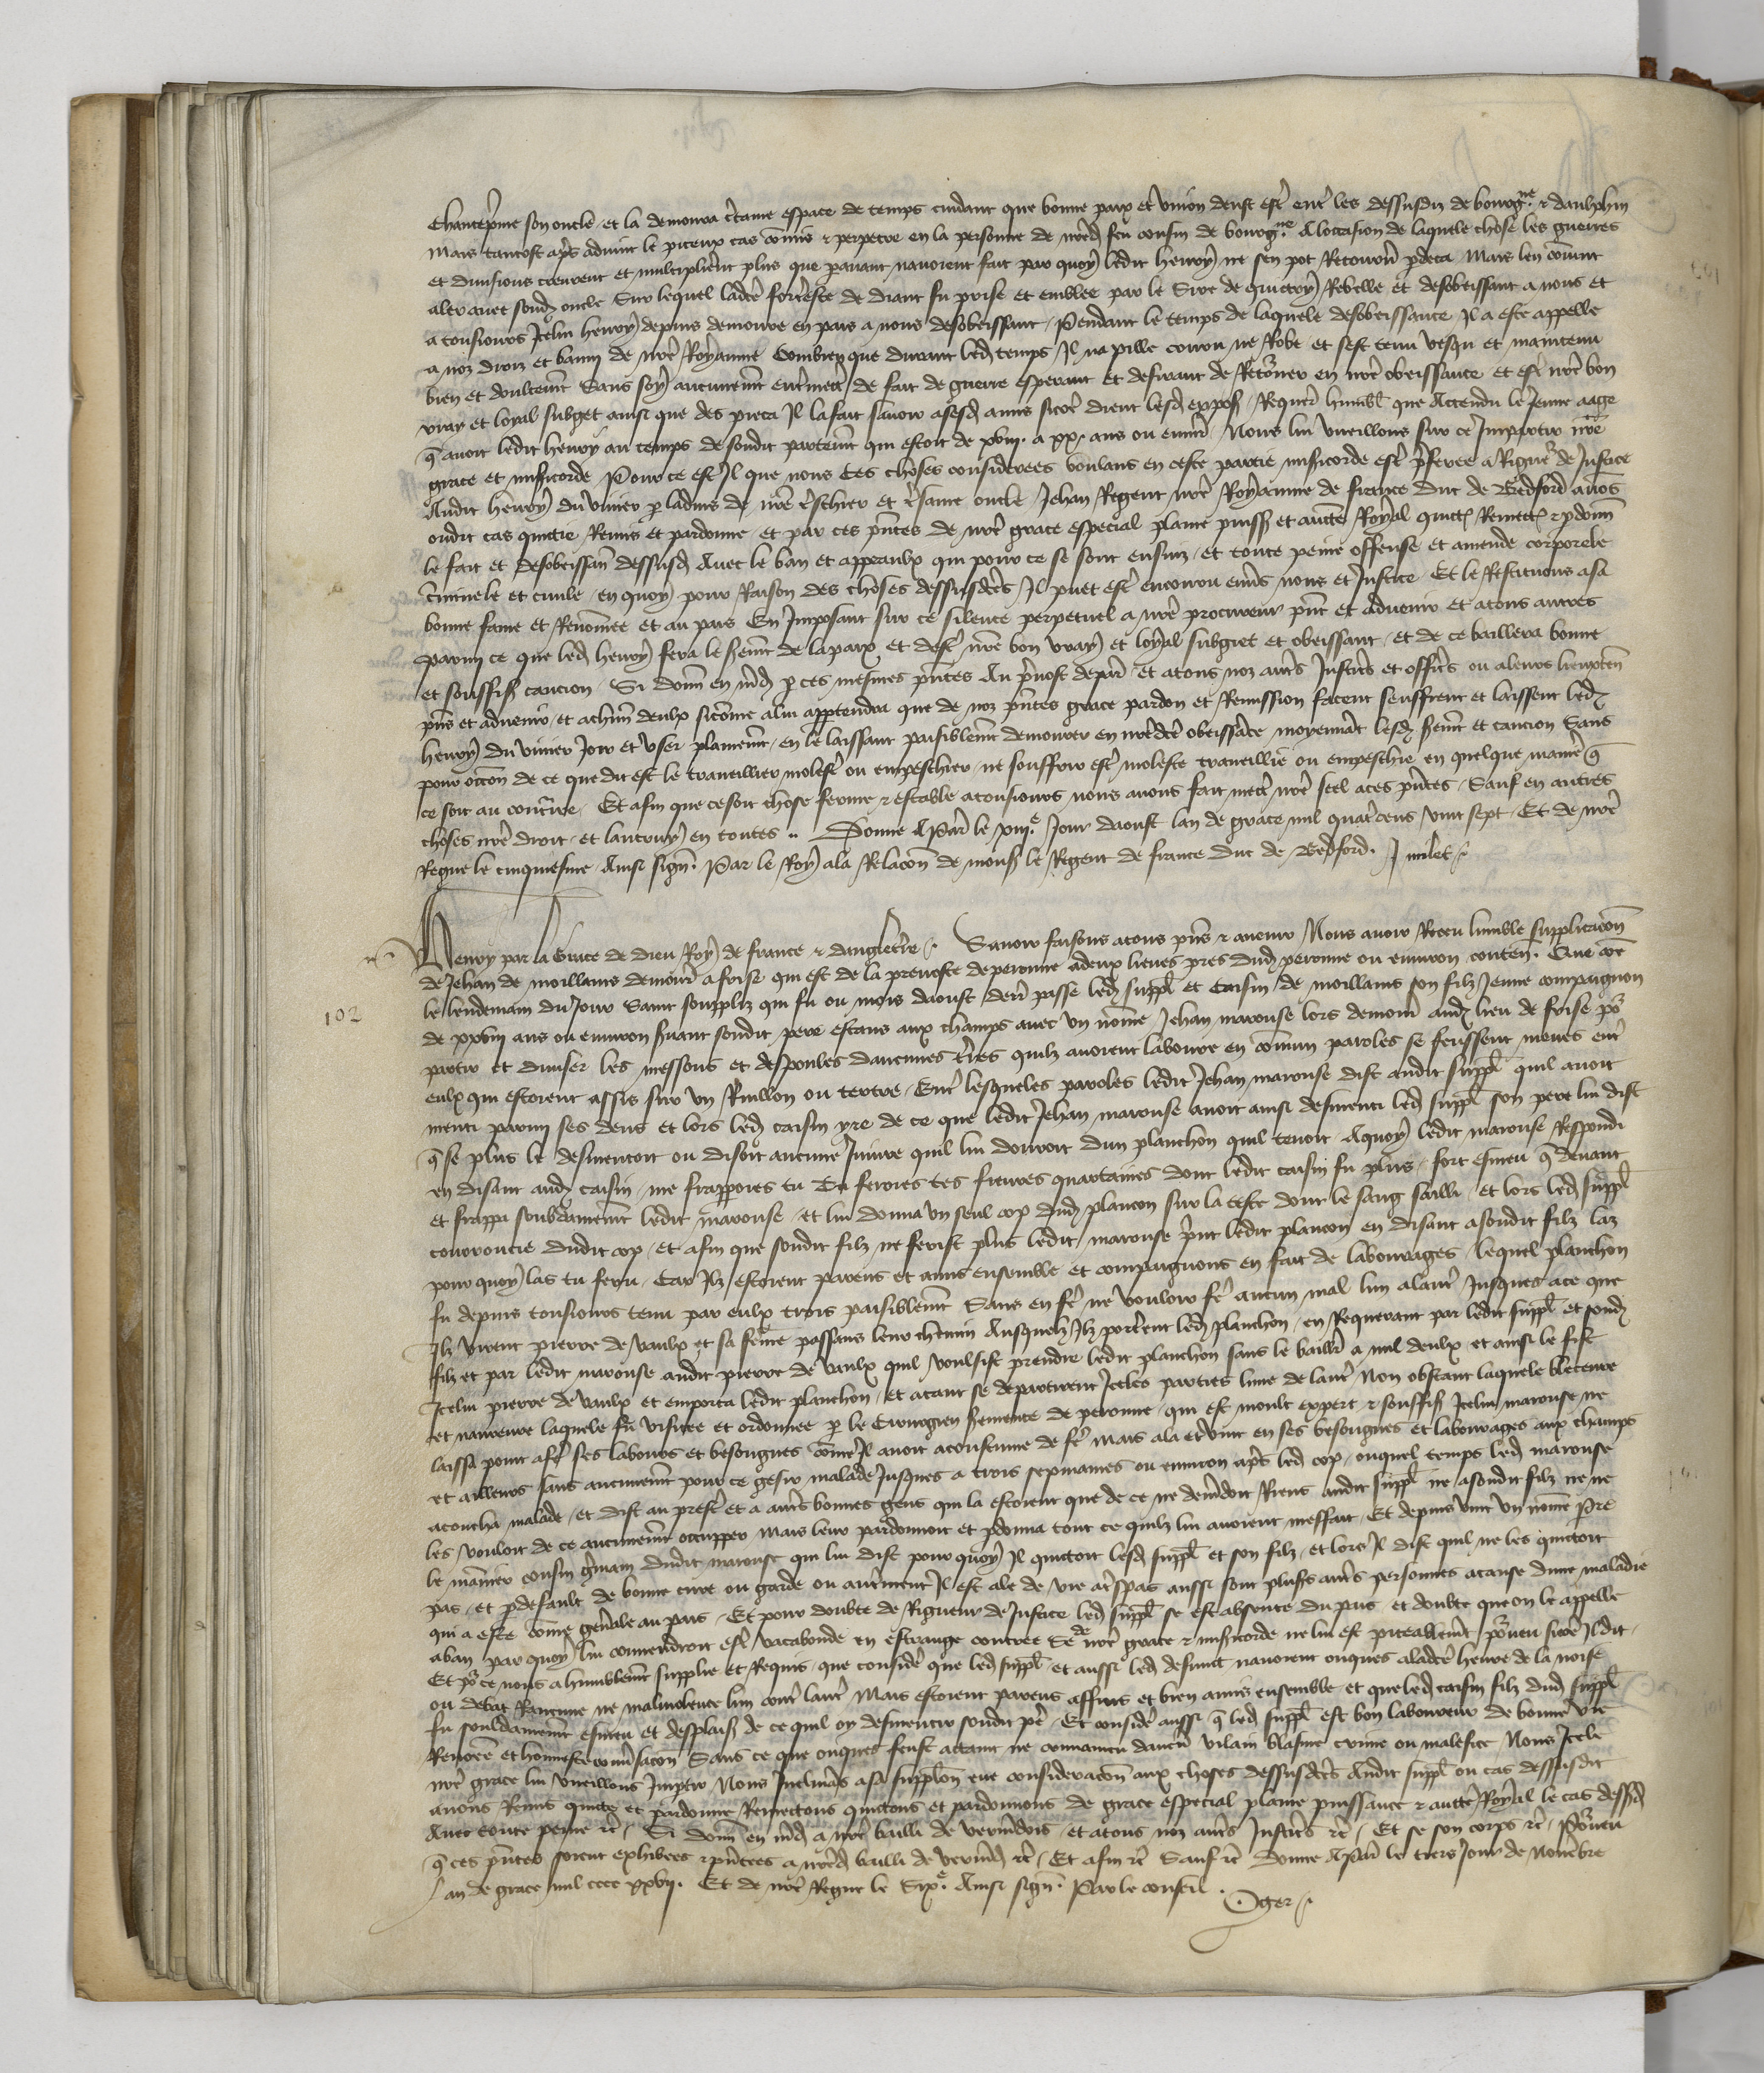 Chanteprime son oncle et la demoura c̃taine espace de temps cuidant que bonne paix et union deust est̃ ent̃ les dessusdiz de bourg.ne & daulphin
Mais tantost apr̃s advint le piteux cas cõmis & perpetré en la personne de nr̃ed feu cousin de bourg.ne A loccasion de laquele chose les guerres
et divisions creurent et multiplierẽt plus que paravant navoient fait par quoy ledit henry ne sen pot Retourñ p̱deca Mais sen cõvint
aler avec sond oncle Sur lequel ladcẽ forterẽsse de Diant fu prise et emblee par le Sire de Guitry Rebelle et desobeissant a nous et
a tousiours Icelui henry depuis demouré en pais a nous desobeissant / Pendant le temps de laquele desobeissance Il a esté appellé
a noz droiz et banny de nr̃e Royaume Combien que durant led temps Il na pillé couru ne Robé et sest tenu vescu et maintenu
bien et doulcemẽt Sans soy aucunemẽt entremetr̃ de fait de guerre esperant et desirant de Retõrner en nr̃e obeissance et est̃ nr̃e bon
vray et loyal subget ainsi que des pieca Il la fait savoir asesd amis sicõe dient lesd exposs Requer̃ humbl̃ que Attendu le Jeune aage
q̃ avoit ledit henry au temps de sondit partemẽt qui estoit de xviii. a xx. ans ou envir̃ Nous lui vueillons sur ce Impartir nr̃e
grace et miss̃icorde Pour ce est Il que nous Ces choses considerees voulans en ceste partie miss̃icorde est̃ p̃feree a Riguer̃ de Justice
Audit henry du vivier p̱ ladvis de nr̃e tr̃eschier et tr̃esamé oncle Jehan Regent nr̃e Royaume de france Duc de Bedford avos
oudit cas quictie Remis et pardonné et par ces p̃ntes de nr̃e grace especial plaine puiss̃ et aucte Royal quictõs Remectõs & p̱dõnõs
le fait et desobeissañ dessusd Avec le ban et appeaulx qui pour ce se sont ensuiz et toute peine offense et amende corporele
c̃iminele et civile en quoy pour Raison des choses dessusdc̃es Il puet est̃ encouru envers nous et Justice Et le Restituons asa
bonne fame et Renõmee et au pais En Imposant sur ce silence perpetuel a nr̃e procureur p̃nt et advenir et atous autres
parmi ce que led henry fera le serẽnt de la paix et dest̃ nr̃e bon vray et loyal subgiet et obeissant et de ce baillera bonne
et souffiss̃ caucion Si donñ en mãd p̱ ces mesmes p̃ntes Au p̃vost depar̃ Et atous noz autrs Justicrs̃ et officrs̃ ou aleurs lieuxteñ
p̃ns et advenir et achũn deulx sicõme alui appartendra que de noz p̃ntes grace pardon et Remission facent seuffrent et laissent led
henry du vivier Joir et User plainemẽt en le laissant paisiblemẽt demourer en nr̃edcẽ obeissãce moyenñat lesd serẽnt et caucion Sans
pour occõn de ce que dit est le traveillier molest̃ ou empeschier ne souffrir est̃ molesté traveillié ou empeschié en quelque maniẽ q̃
ce soit au contr̃aire / Et afin que cesoit chose ferme & estable atousiours nous avons fait metr̃ nr̃e seel aces p̃ntes Sauf en autres
choses nr̃e droit et lautruy en toutes .. Donné A Par̃ le xiii.e Jour daoust lan de grace mil quatr̃ecens vint sept Et de nr̃e
Regne le cinquiesme Ainsi sign̄. Par le Roy ala Relacõn de mons̃ le Regent de france duc de Bedford. J milet /.
Henry par la Grace de dieu Roy de france & dangletẽrre /. Savoir faisons atous p̃ns & avenir Nous avoir Receu humble supplicaciõn
de Jehan de moillains demour̃ a frise qui est de la prevosté de peronne adeux lieues pres dud peronne ou environ conteñ. Que cõe
102
le lendemain du Jour Saint souplis qui fu ou mois daoust deñ passé led suppl̃ et Caisin de moillains son filz Jeune compaignon
de xxviii ans ou environ suivant sondit pere estans aux champs avec un nõmé Jehan marouse lors demour̃ aud lieu de frise pr̃
partir et diviser les messons et despoules daucunes tr̃res quilz avoient labouré en cõmun paroles se feussent meues ent̃
eulx qui estoient assis sur un Rullon ou tertre Ent̃ lesqueles paroles ledit Jehan marouse dist audit suppl̃ quil avoit
menti parmi ses dens et lors led caisin yré de ce que ledit Jehan marouse avoit ainsi desmenti led suppl̃ son pere lui dist
q̃ se plus le desmentoit ou disoit aucune Iniure quil lui donroit dun planchon quil tenoit Aquoy ledit marouse Respondi
en disant aud caisin me frapperoies tu Tu feroies tes fievres quartaines dont ledit caisin fu plus fort esmeu q̃ devant
et frappa soubdainemẽt ledit marouse et lui donna un seul cop dud plancon sur la teste dont le sang sailli et lors led suppl̃
courroucié dudit cop et afin que sondit filz ne ferist plus ledit marouse p̃nt ledit plancon en disant asondit filz laz
pour quoy las tu feru Car Ilz estoient parens et amis ensemble et compaignons en fait de labourages lequel planchon
fu depuis tousiours tenu par eulx trois paisiblemẽt Sans en fẽ ne vouloir fẽ aucun mal lun alautr̃ Jusques ace que
Ilz virent pierre de vaulx et sa fẽme passans leur chemin Ausquelz Ilz porterẽt led planchon en Requerant par ledit suppl̃ et sond
filz et par ledit marouse audit pierre de vaulx quil voulsist prendre ledit planchon sans le baillr̃ a nul deulx et ainsi le fist
Icelui pierre de vaulx et emporta ledit planchon et atant se departirent Iceles parties lune de lautr̃ Non obstant laquele bleceure
et navreure laquele fu visitee et ordonnee p̱ le Cirurgien sermenté de peronne qui est moult expert & souffiss̃ Icelui marouse ne
laissa point afẽ ses labours et besongnes cõme Il avoit acoustumé de fẽ Mais ala et vint en ses besongnes et labourages aux champs
et ailleurs sans aucunemẽt pour ce gesir malade Jusques a trois sepmaines ou environ apr̃s led cop ouquel temps led marouse
acoucha malade et dist au prest̃ et a autrs̃ bonnes gens qui la estoient que de ce ne demãdoit Riens audit suppl̃ ne asondit filz ne ne
les vouloit de ce aucunemẽt occupper Mais leur pardonnoit et p̱donna tout ce quilz lui avoient meffait Et depuis vint un nõmé Pre
le mãnier cousin g̃main dudit marouse qui lui dist pour quoy Il quictoit lesd suppl̃ et son filz et lors Il dist quil ne les quictoit
pas et p̱ default de bonne cure ou garde ou autremẽnt Il est alé de vie at̃spas aussi sont plusrs̃ autrs̃ personnes acause dune maladie
qui a esté cõme genẽrale au pais / Et pour doubte de Rigueur de Justice led suppl̃ se est absenté du pais et doubte que on le appelle
aban par quoy lui convendroit est̃ vacabonde en estrange contree Se de nr̃e grace & miss̃icorde ne lui est piteablemẽt pr̃veu sicõe Il dit
Et pr̃ ce nous a humblemẽt supplié et Requis que consideré que led suppl̃ et aussi led defunct navoient onques aladcẽ heure de la noise
ou debat Rancune ne malivolence lun contr̃ lautr̃ Mais estoient parens affins et bien amis ensemble et que led caisin filz dud suppl̃
fu souldainemẽt esmeu et desplaiss̃ de ce quil oy desmentir sondit per̃ Et consideré aussi q̃ led suppl̃ est bon laboureur de bonne vie
Renõmee et honneste convers̃acon Sans ce que onques feust attaint ne convaincu daucũ vilain blasme crime ou malefice Nous Icele
nr̃e grace lui vueillons Impartir Nous Inclinãs asa supplicõn eue consideracõn aux choses dessusdc̃es Audit suppl̃ ou cas dessusdit
avons Remis quictié et pardonné Remectons quictons et pardonnons de grace especial plaine puissance & auctẽ Royal le cas dessusd
Avec toute peine etc̃ / Si donñ en mãd a nr̃e bailli de vermãdois et atous noz autrs̃ Justicrs̃ etc̃ / Et se son corps etc̃ / Pourveu
q̃ ces p̃ntes soient exhibees & p̃ntees a nr̃ed bailli de vermãd etc̃ / Et afin etc̃ Sauf etc̃ Donné A Par̃ le tiers Jour de Novẽbre
Lan de grace mil cccc xxvii. Et de nr̃e Regne le Six.e Ainsi sign̄. Par le conseil .
Oger /.